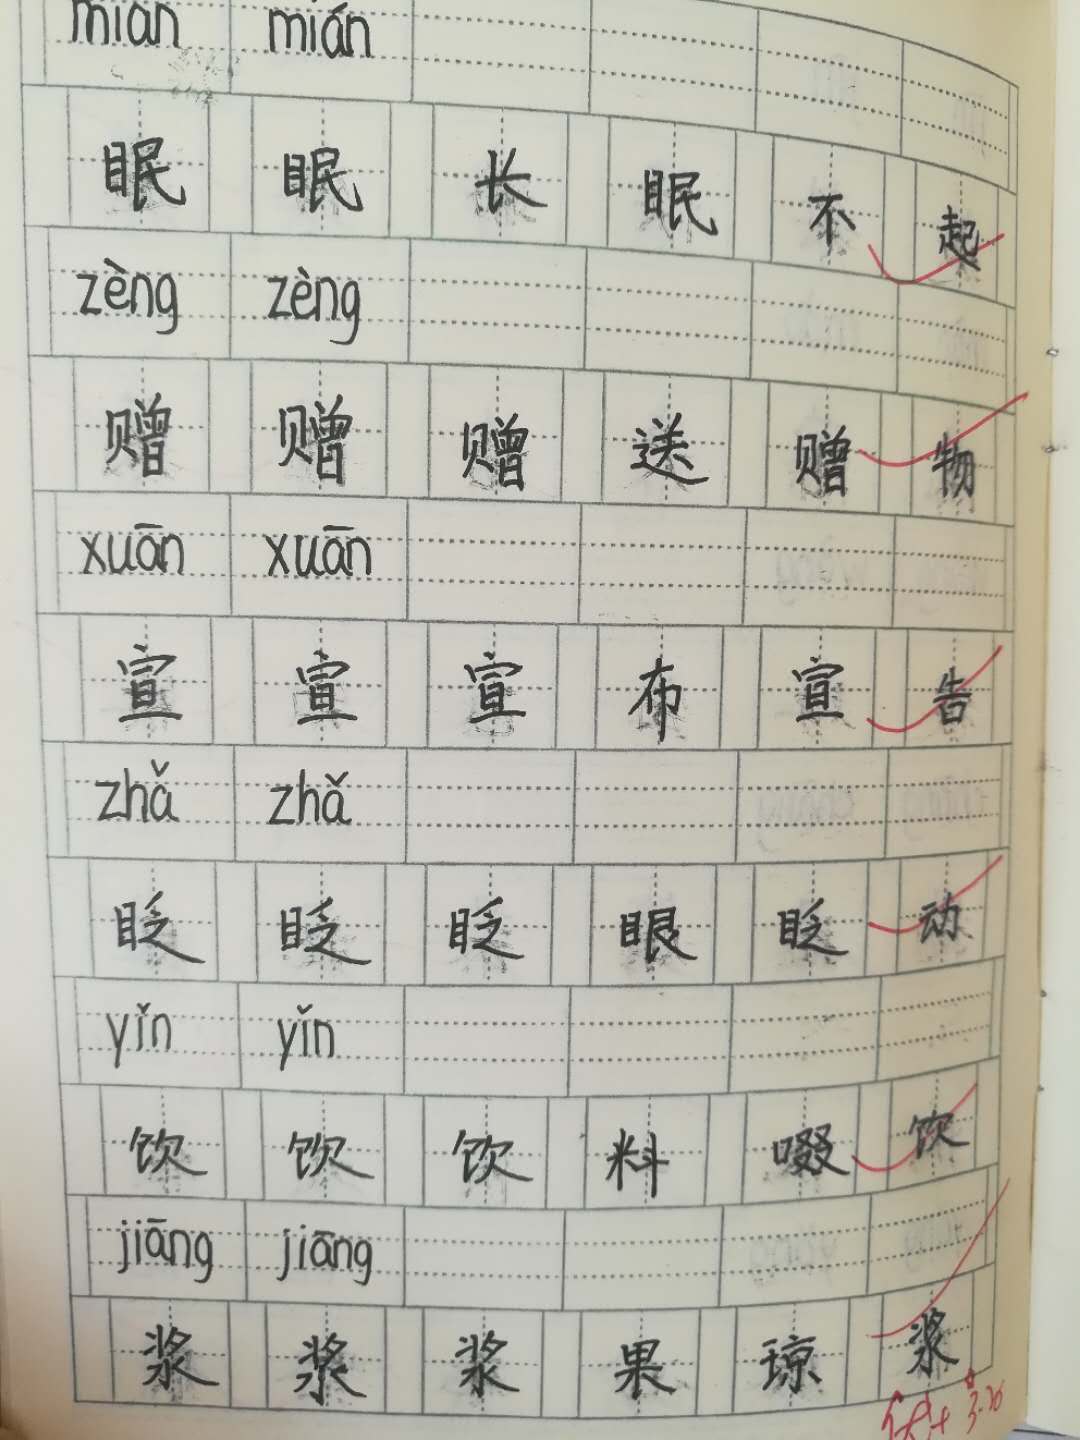 mián mián
眠 眠 长 眠 不 起
zèng zèng
赠 赠 赠 送 赠 物
xuān xuān
宣 宣 宣 布 宣 告
zhǎ zhǎ
眨 眨 眨 眼 眨 动
yǐn yǐn
饮 饮 饮 料 啜 饮
jiāng jiāng
浆 浆 浆 果 琼 浆